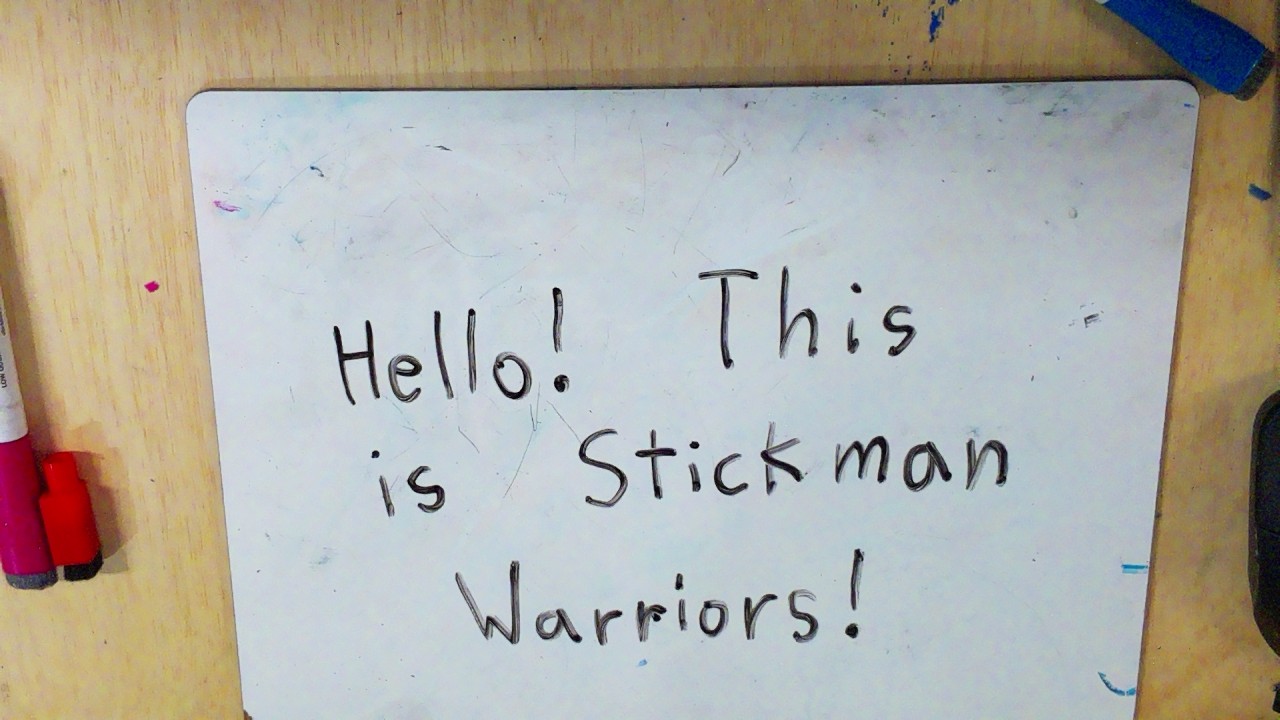 Hello! This
is Stickman
Warriors!